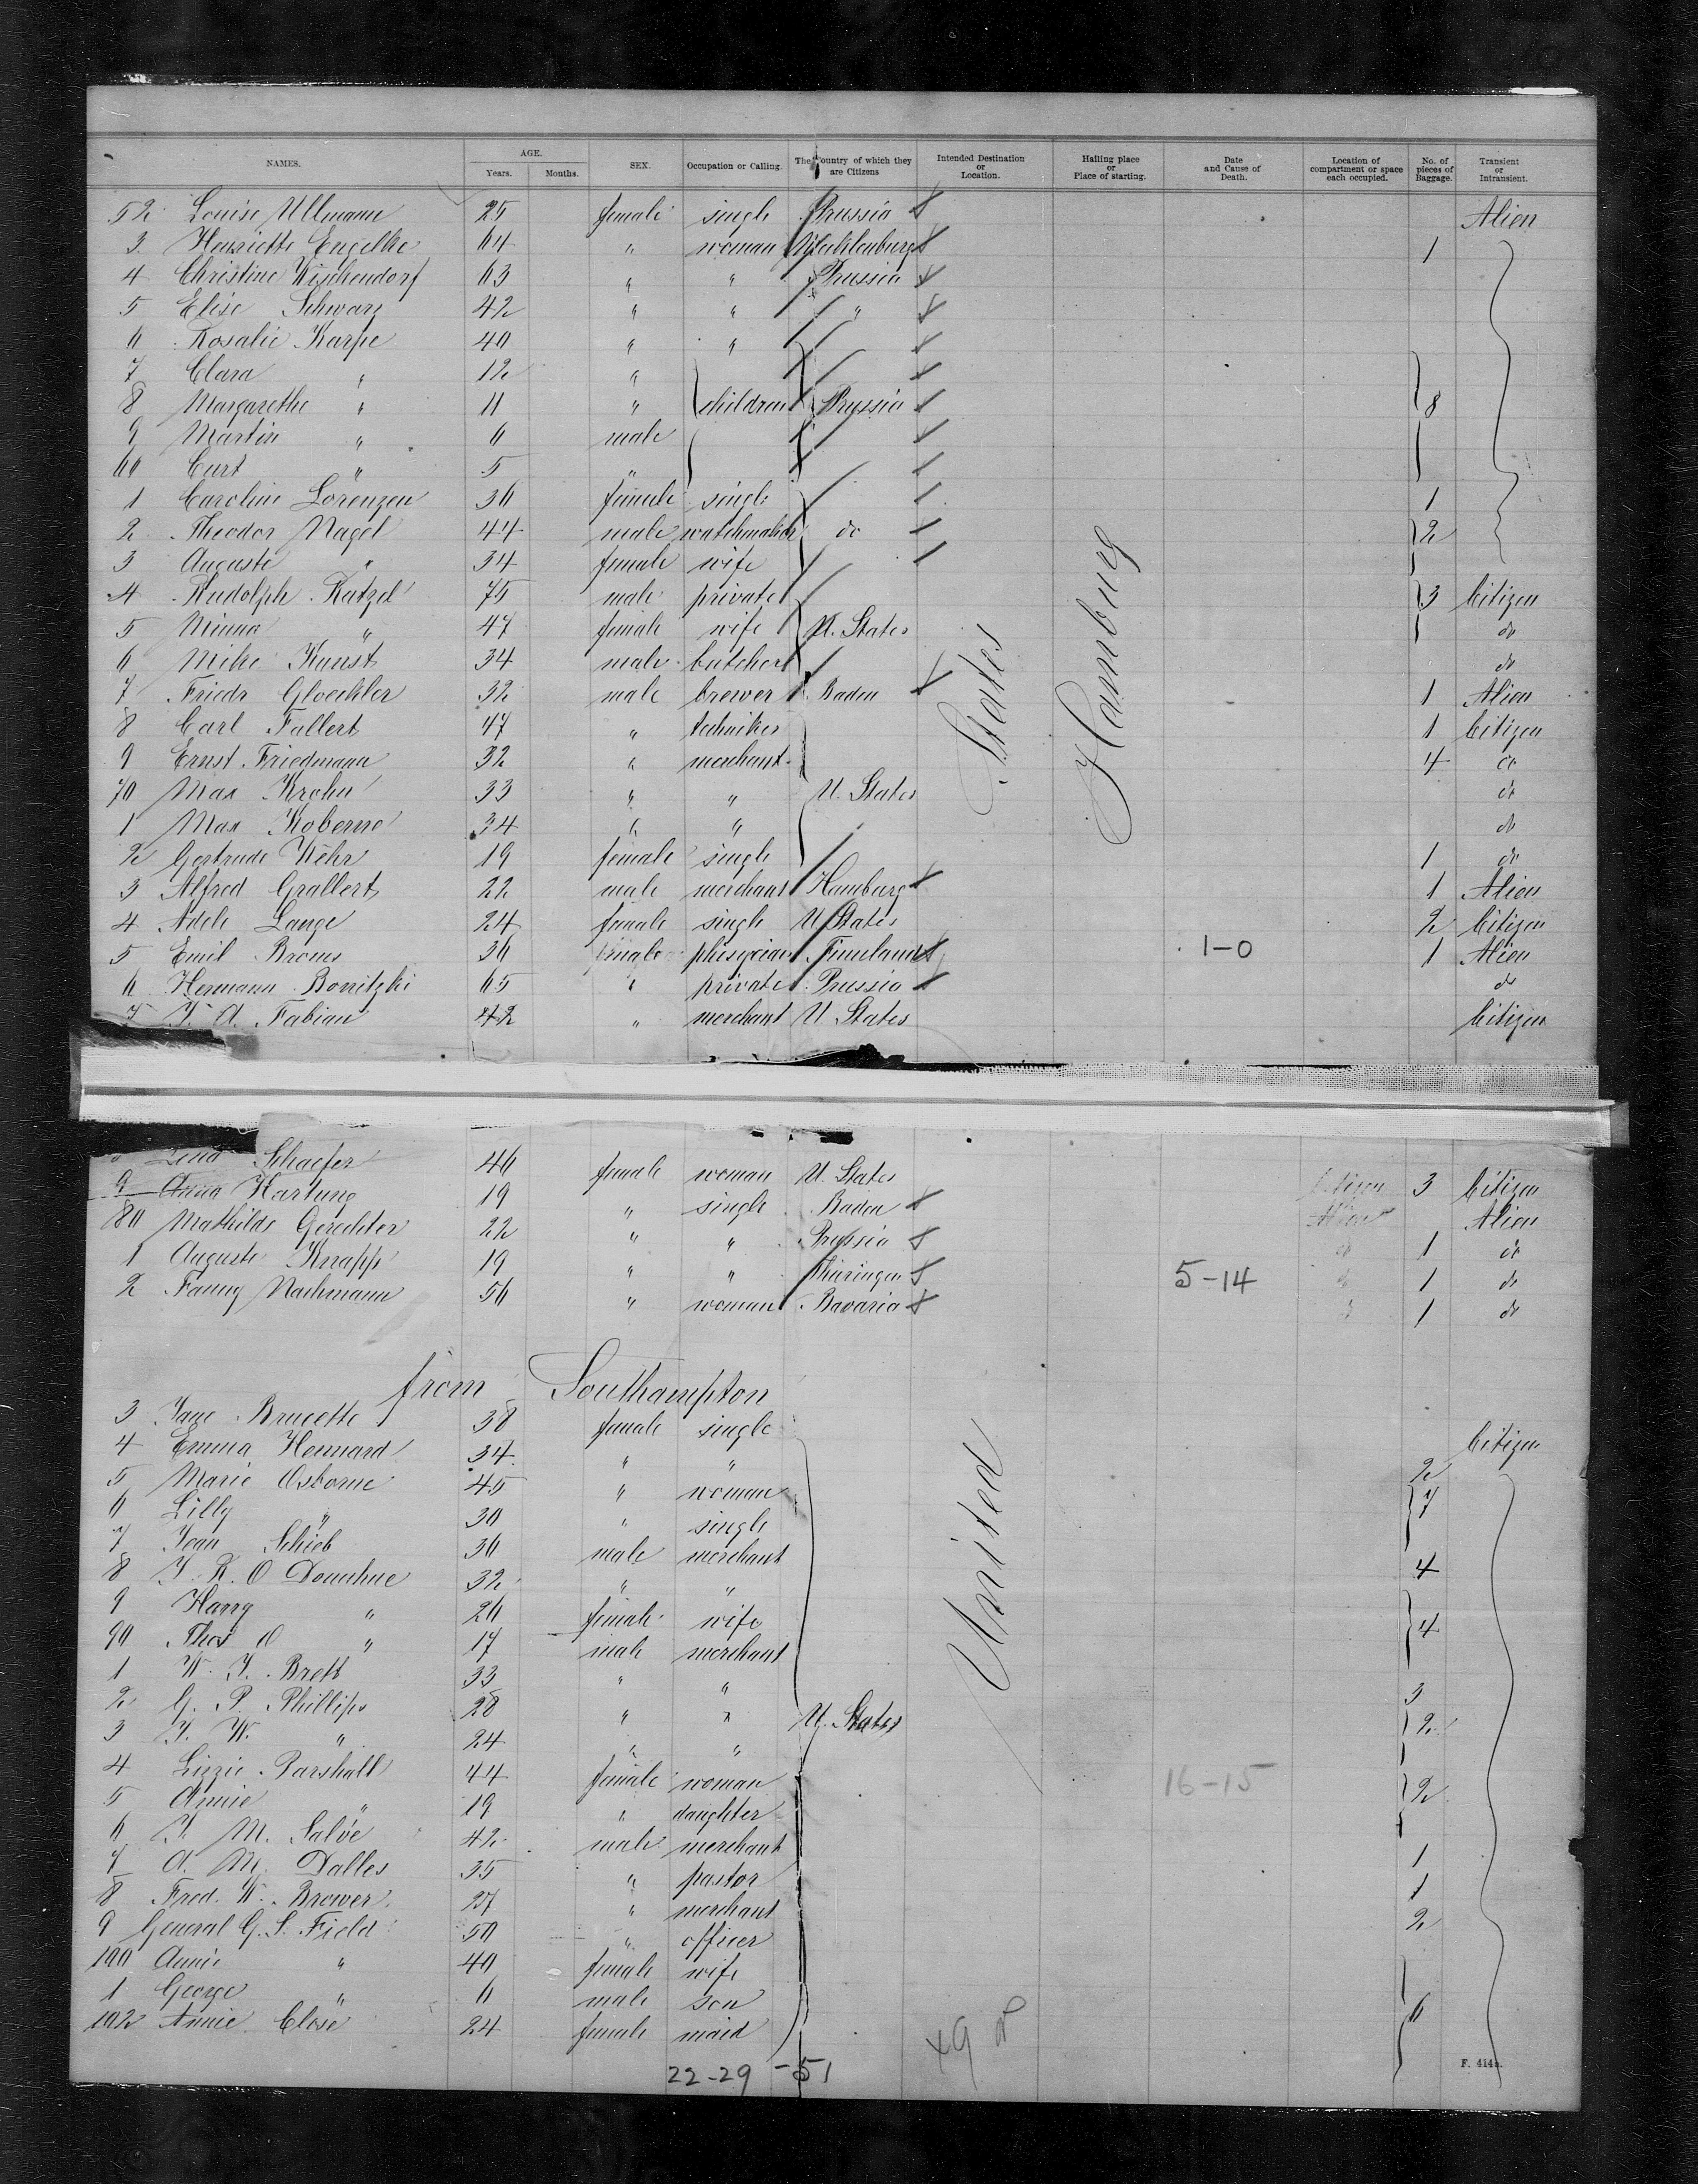 NAMES. AGE. Years. Months. SEX. Occupation or Calling. The Country of which they are Citizens Intended Destination or Location. Hailing place or Place of starting. Date and Cause of Death. Location of compartment or space each occupied. No. of pieces of Baggage. Transient or Intransient.
52 Louise Ullmann 25 female single Prussia Alien
3 Henriette Engelke 64 " woman Mecklenburg 1
4 Christine Wischendorf 63 " " Prussia
5 Elise Schwarz 42 " " "
6 Rosalie Karpe 40 " "
7 Clara " 12 "
8 Margarethe " 11 " children Prussia 8
9 Martin " 6 male
60 Curt " 5 "
1 Caroline Lorenzen 36 female single 1
2 Theodor Nagel 44 male watchmaker do 2
3 Auguste " 34 female wife
4 Rudolph Katzel 75 male private 3 Citizen
5 Minna " 47 female wife U. States do
6 Mike Kunst 34 male butcher do
7 Friedr Gloeckler 32 male brewer Baden 1 Alien
8 Carl Fallert 47 " techniker 1 Citizen
9 Ernst Friedmann 32 " merchant 4 do
70 Max Krohn 33 " " U. States do
1 Max Koberne 34 " " do
2 Gertrude Wehr 19 female single 1 do
3 Alfred Grallert 22 male merchant Hamburg 1 Alien
4 Adele Lange 24 female single U States 2 Citizen
5 Emil Broms 36 Finnland 1-0 1 Alien
6 Hermann Bonitzki 65 " private Prussia do
7 42 " merchant U States Citizen
States
Hamburg
Schaefer 46 female woman U. States Citizen 3 Citizen
9 Anna Hartung 19 " single Baden Alien Alien
80 Mathilde Gerechter 22 " " Prussia do 1 do
1 Auguste Knapp 19 " " Thüringen 5-14 do 1 do
2 Fanny Nachmann 56 " woman Bavaria do 1 do
from Southampton
3 Jane Brucette 38 female single Citizen
4 Emma Hennard 34 " " 2
5 Marie Osborne 45 " woman 7
6 Lilly " 30 " single
7 Jean Schieb 36 male merchant
8 J. R. O Donuhue 32 " " 4
9 Harry " 26 female wife 4
90 Thos O " 17 male merchant
1 W. J. Brett 33 " "
2 G. P. Phillips 28 " " U. States 3
3 J. W. " 24 " " 2
4 Lizzie Parshall 44 female woman 16-15 2
5 Annie " 19 " daughter
6 M. Salve 42 male merchant
7 A. M. Dalles 35 " pastor 1
8 Fred. W. Brower 27 " merchant 1
9 General G. S. Field 50 " officer 2
100 Annie " 40 female wife
1 George " 6 male son 6
102 Annie Close 24 female maid
United
22-29-51
F. 414a.